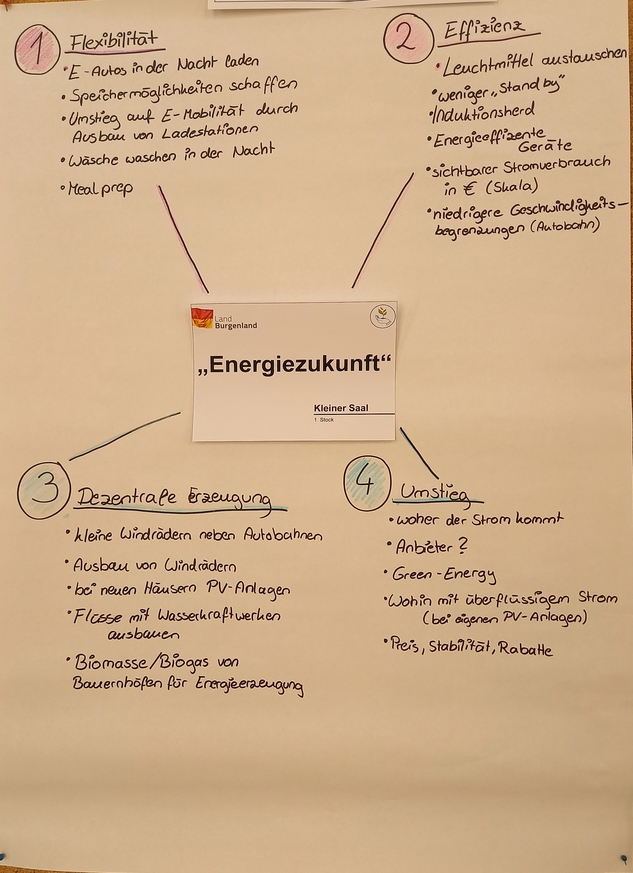 1 Flexibilität
• E-Autos in der Nacht laden
• Speichermöglichkeiten schaffen
• Umstieg auf E-Mobilität durch
Ausbau von Ladestationen
• Wäsche waschen in der Nacht
• Meal prep
2 Effizienz
• Leuchtmittel austauschen
• weniger „Stand by"
• Induktionsherd
• Energieeffizente
Geräte
• sichtbarer Stromverbrauch
in € (Skala)
• niedrigere Geschwindigkeits-
begrenzungen (Autobahn)
Land
Burgenland
„Energiezukunft“
Kleiner Saal
1. Stock
3 Dezentrale Erzeugung
• kleine Windrädern neben Autobahnen
• Ausbau von Windrädern
• bei neuen Häusern PV-Anlagen
• Flüsse mit Wasserkraftwerken
ausbauen
• Biomasse/Biogas von
Bauernhöfen für Energieerzeugung
4 Umstieg
• woher der Strom kommt
• Anbieter?
• Green-Energy
• Wohin mit überflüssigem Strom
(bei eigenen PV-Anlagen)
• Preis, Stabilität, Rabatte